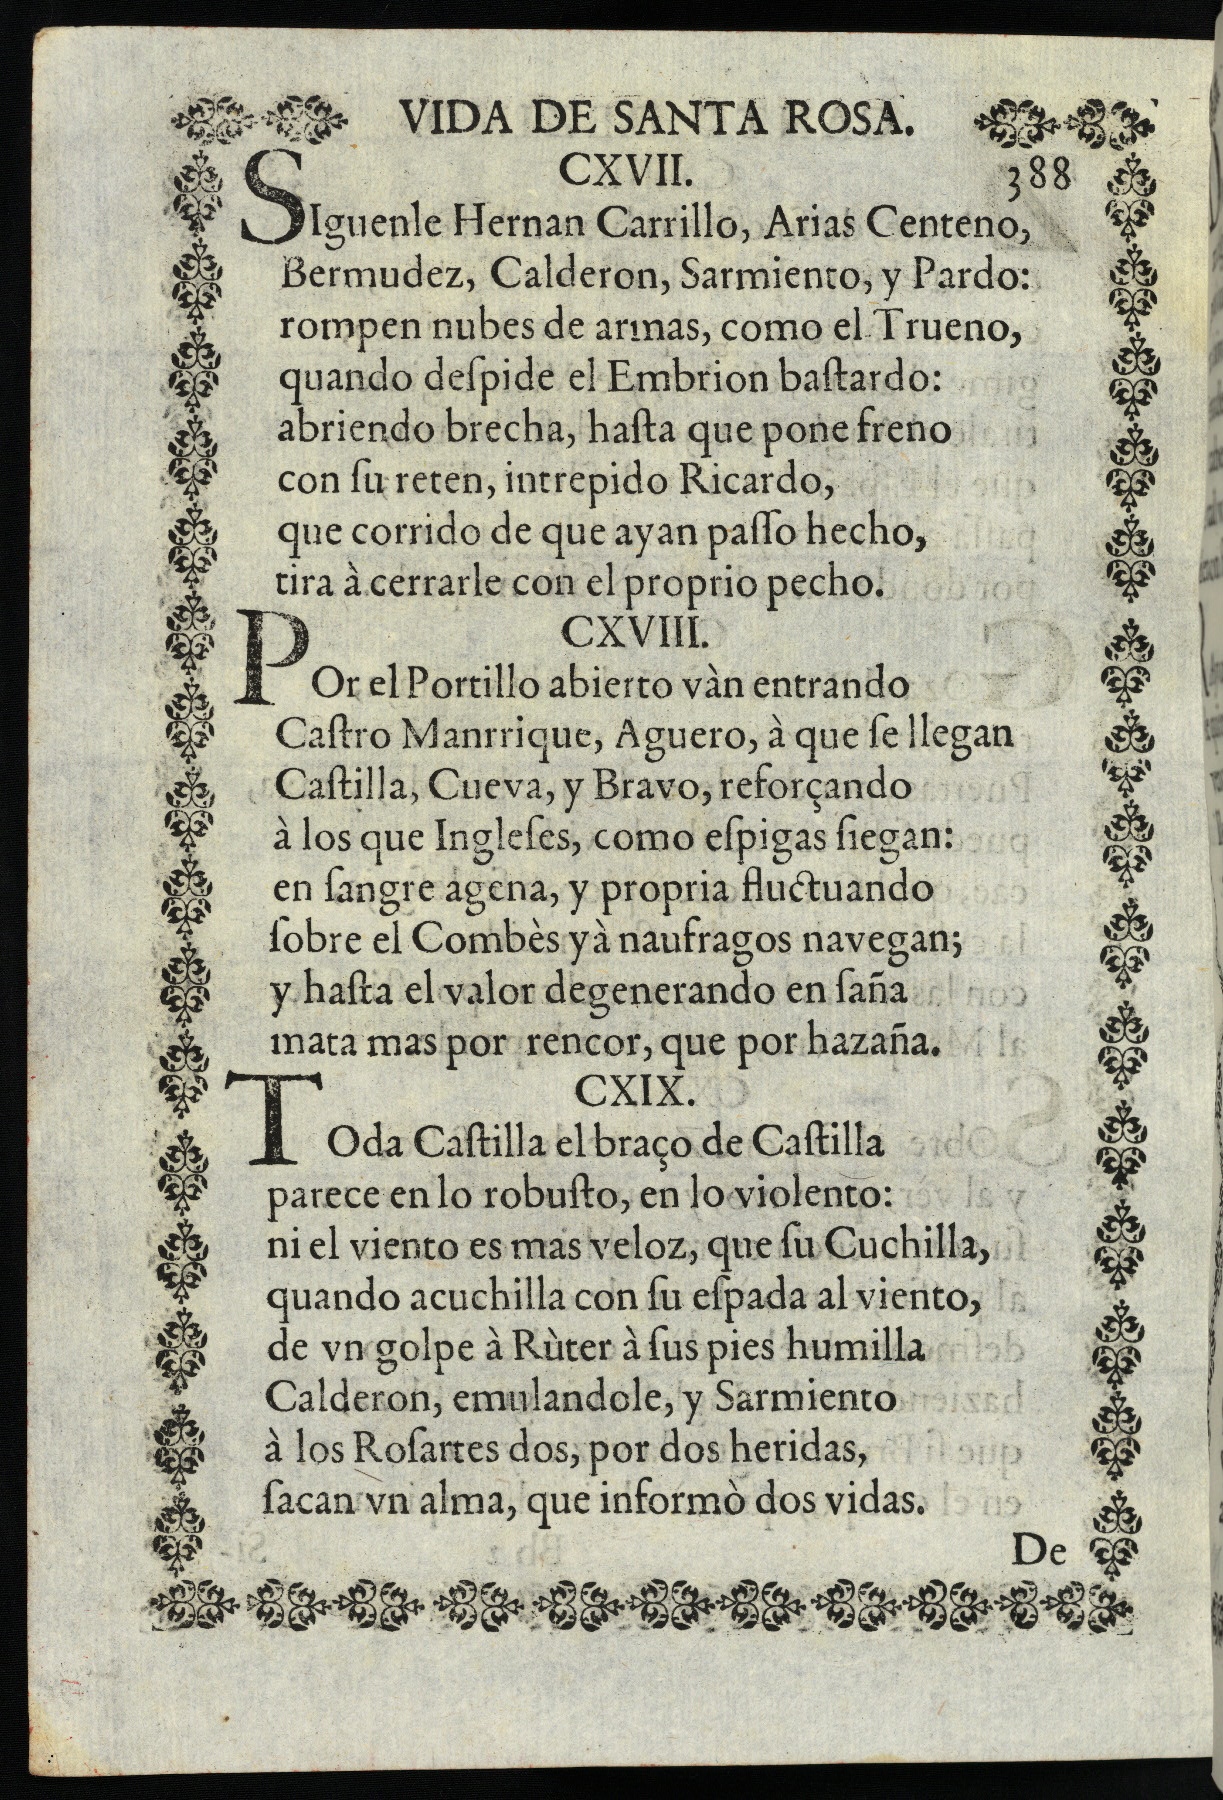 VIDA DE SANTA ROSA.
CXVII. 388
SIguenle Hernan Carrillo, Arias Centeno,
Bermudez, Calderon, Sarmiento, y Pardo:
rompen nubes de armas, como el Trueno,
quando deſpide el Embrion baſtardo:
abriendo brecha, haſta que pone freno
con ſu reten, intrepido Ricardo,
que corrido de que ayan paſſo hecho,
tira à cerrarle con el proprio pecho.
CXVIII.
POr el Portillo abierto vàn entrando
Caſtro Manrrique, Aguero, à que ſe llegan
Caſtilla, Cueva, y Bravo, reforçando
à los que Ingleſes, como eſpigas ſiegan:
en ſangre agena, y propria fluctuando
ſobre el Combès yà naufragos navegan;
y haſta el valor degenerando en ſaña
mata mas por rencor, que por hazaña.
CXIX.
TOda Caſtilla el braço de Caſtilla
parece en lo robuſto, en lo violento:
ni el viento es mas veloz, que ſu Cuchilla,
quando acuchilla con ſu eſpada al viento,
de vn golpe à Rùter à ſus pies humilla
Calderon, emulandole, y Sarmiento
à los Roſartes dos, por dos heridas,
ſacan vn alma, que informò dos vidas.
De